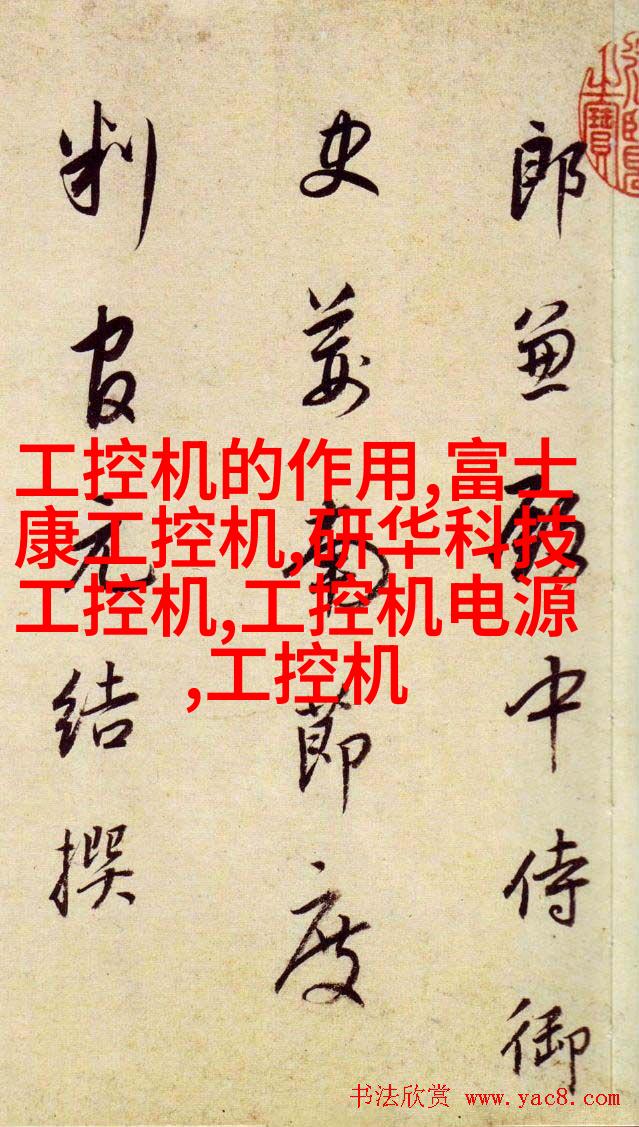 郎兼殿中侍御
史荊南節度
判官元結撰
工控机的作用,富士
康工控机,研华科技
工控机,工控机电源
,工控机
书法欣赏 www.yac8.com